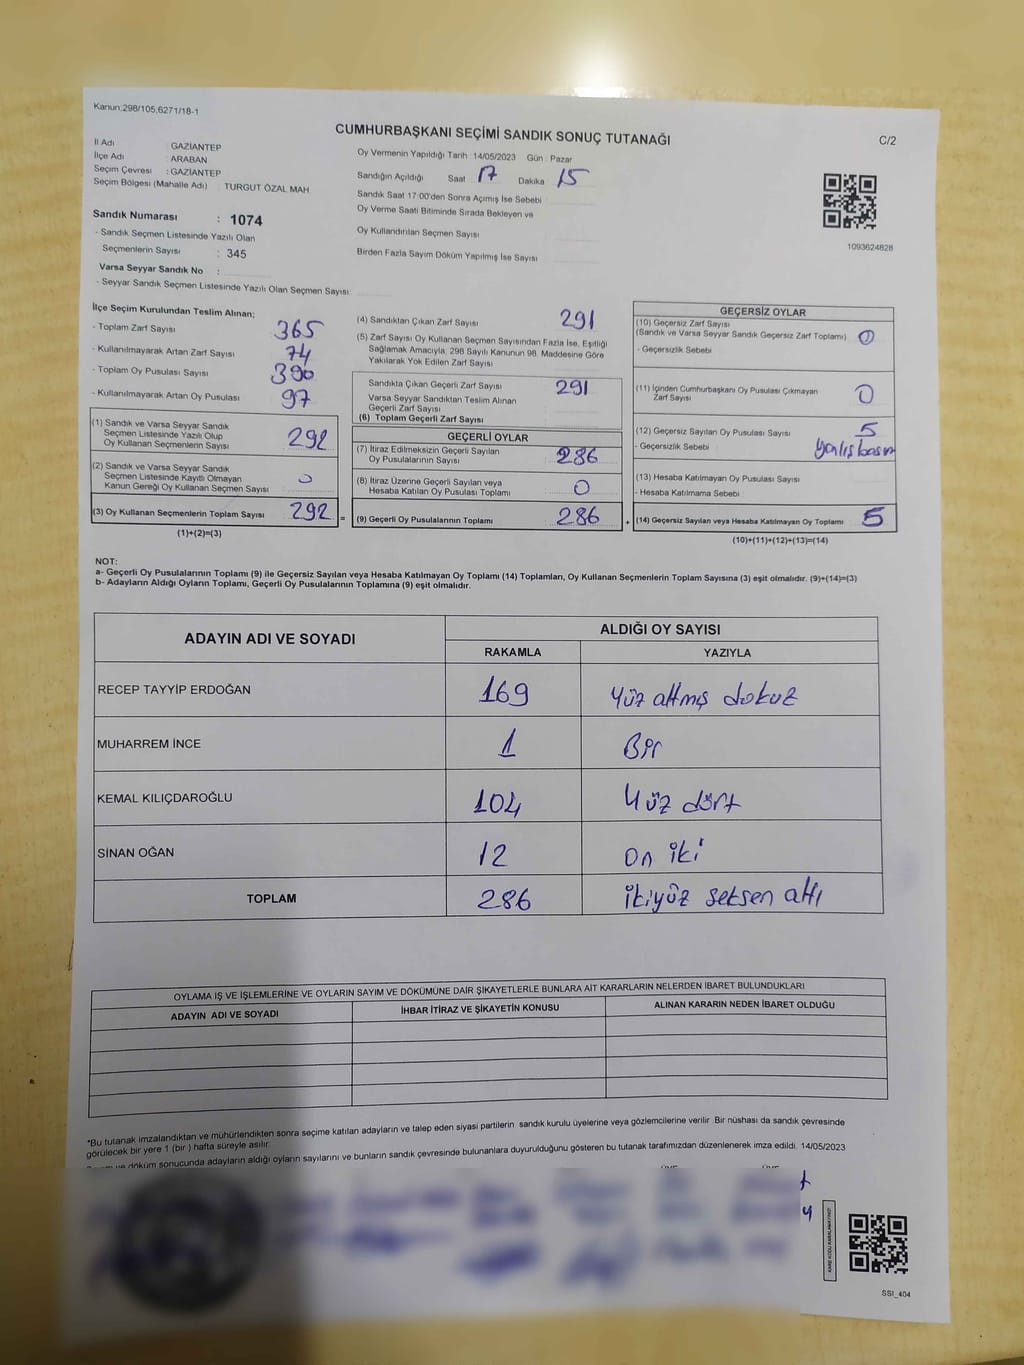 Kanun:298/105,6271/18-1
CUMHURBAŞKANI SEÇİMİ SANDIK SONUÇ TUTANAĞI
C/2
İl Adı GAZİANTEP
İlçe Adı ARABAN
Seçim Çevresi : GAZİANTEP
Seçim Bölgesi (Mahalle Adı) : TURGUT ÖZAL MAH
Sandık Numarası : 1074
- Sandık Seçmen Listesinde Yazılı Olan
Seçmenlerin Sayısı : 345
Varsa Seyyar Sandık No :
- Seyyar Sandık Seçmen Listesinde Yazılı Olan Seçmen Sayısı:
Oy Vermenin Yapıldığı Tarih : 14/05/2023 Gün : Pazar
Sandığın Açıldığı Saat 17 Dakika 15
Sandık Saat 17:00'den Sonra Açımış İse Sebebi :
Oy Verme Saati Bitiminde Sırada Bekleyen ve
Oy Kullandırılan Seçmen Sayısı
Birden Fazla Sayım Döküm Yapılmış İse Sayısı
1093624828
İlçe Seçim Kurulundan Teslim Alınan;
- Toplam Zarf Sayısı 365
- Kullanılmayarak Artan Zarf Sayısı 74
- Toplam Oy Pusulası Sayısı 390
- Kullanılmayarak Artan Oy Pusulası 97
(1) Sandık ve Varsa Seyyar Sandık
Seçmen Listesinde Yazılı Olup
Oy Kullanan Seçmenlerin Sayısı 292
(2) Sandık ve Varsa Seyyar Sandık
Seçmen Listesinde Kayıtlı Olmayan
Kanun Gereği Oy Kullanan Seçmen Sayısı 0
(3) Oy Kullanan Seçmenlerin Toplam Sayısı 292 =
(1)+(2)=(3)
(4) Sandıktan Çıkan Zarf Sayısı 291
(5) Zarf Sayısı Oy Kullanan Seçmen Sayısından Fazla İse, Eşitliği
Sağlamak Amacıyla, 298 Sayılı Kanunun 98. Maddesine Göre
Yakılarak Yok Edilen Zarf Sayısı
Sandıkta Çıkan Geçerli Zarf Sayısı 291
Varsa Seyyar Sandıktan Teslim Alınan
Geçerli Zarf Sayısı
(6) Toplam Geçerli Zarf Sayısı
GEÇERLİ OYLAR
(7) İtiraz Edilmeksizin Geçerli Sayılan
Oy Pusulalarının Sayısı 286
(8) İtiraz Üzerine Geçerli Sayılan veya
Hesaba Katılan Oy Pusulası Toplamı 0
(9) Geçerli Oy Pusulalarının Toplamı 286 +
GEÇERSİZ OYLAR
(10) Geçersiz Zarf Sayısı
(Sandık ve Varsa Seyyar Sandık Geçersiz Zarf Toplamı)
- Geçersizlik Sebebi
(11) İçinden Cumhurbaşkanı Oy Pusulası Çıkmayan
Zarf Sayısı 0
(12) Geçersiz Sayılan Oy Pusulası Sayısı 5
- Geçersizlik Sebebi yanlış basım
(13) Hesaba Katılmayan Oy Pusulası Sayısı
- Hesaba Katılmama Sebebi
(14) Geçersiz Sayılan veya Hesaba Katılmayan Oy Toplamı 5
(10)+(11)+(12)+(13)=(14)
NOT:
a- Geçerli Oy Pusulalarının Toplamı (9) ile Geçersiz Sayılan veya Hesaba Katılmayan Oy Toplamı (14) Toplamları, Oy Kullanan Seçmenlerin Toplam Sayısına (3) eşit olmalıdır. (9)+(14)=(3)
b- Adayların Aldığı Oyların Toplamı, Geçerli Oy Pusulalarının Toplamına (9) eşit olmalıdır.
ADAYIN ADI VE SOYADI ALDIĞI OY SAYISI
RAKAMLA YAZIYLA
RECEP TAYYİP ERDOĞAN 169 Yüz altmış dokuz
MUHARREM İNCE 1 Bir
KEMAL KILIÇDAROĞLU 104 Yüz dört
SİNAN OĞAN 12 on iki
TOPLAM 286 ikiyüz seksen altı
OYLAMA İŞ VE İŞLEMLERİNE VE OYLARIN SAYIM VE DÖKÜMÜNE DAİR ŞİKAYETLERLE BUNLARA AİT KARARLARIN NELERDEN İBARET BULUNDUKLARI
ADAYIN ADI VE SOYADI İHBAR İTİRAZ VE ŞİKAYETİN KONUSU ALINAN KARARIN NEDEN İBARET OLDUĞU
*Bu tutanak imzalandıktan ve mühürlendikten sonra seçime katılan adayların ve talep eden siyasi partilerin sandık kurulu üyelerine veya gözlemcilerine verilir. Bir nüshası da sandık çevresinde
görülecek bir yere 1 (bir) hafta süreyle asılır.
döküm sonucunda adayların aldığı oyların sayılarını ve bunların sandık çevresinde bulunanlara duyurulduğunu gösteren bu tutanak tarafımızdan düzenlenerek imza edildi. 14/05/2023
SSI_404